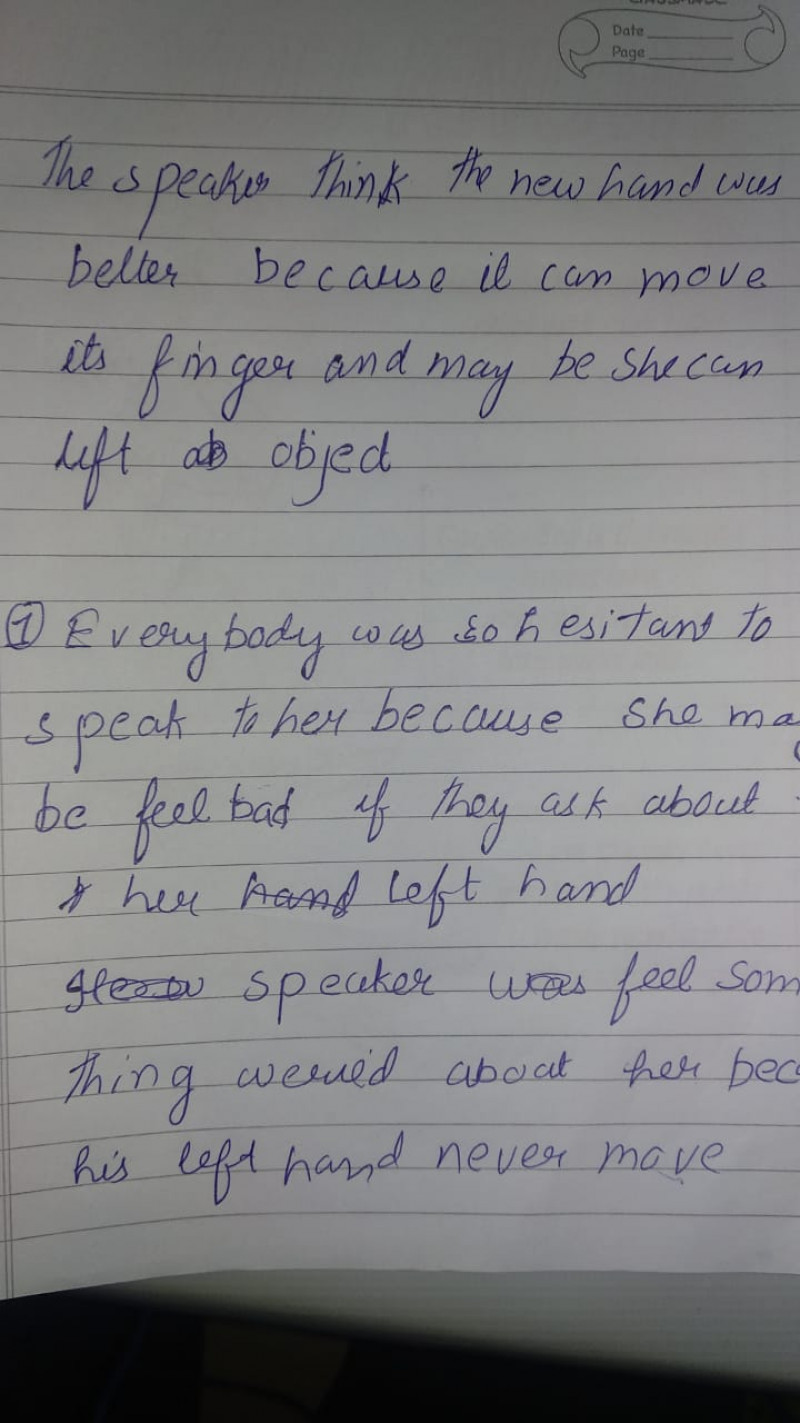 Date
Page
The speaker think the new hand was
better because it can move
its finger and may be she can
left ab object
① Everybody was so hesitant to
speak to her because she may
be feel bad if they ask about
her hand left hand
speaker was feel som
thing weried about her bec
his left hand never move